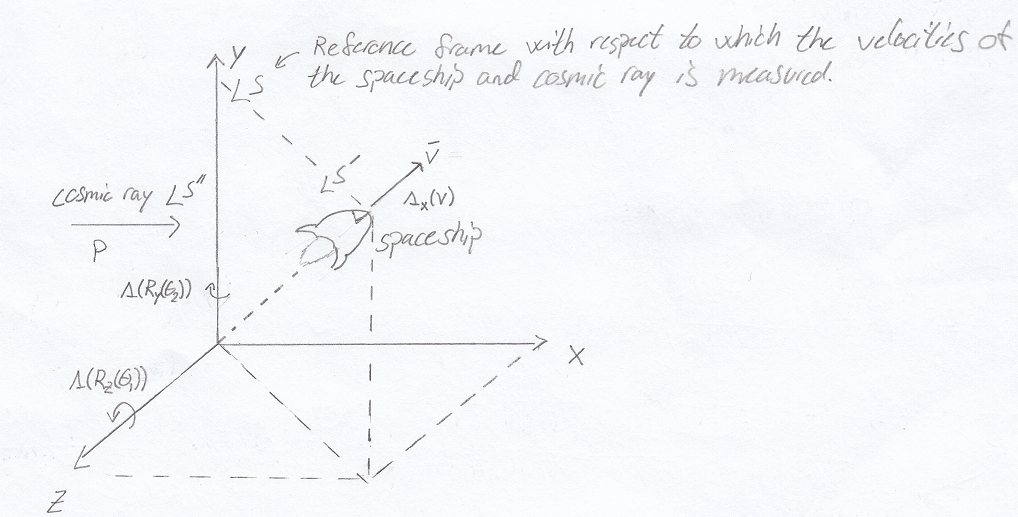 Y
Reference frame with respect to which the velocities of
the spaceship and cosmic ray is measured.
S
S'
v̄
Λx(v)
spaceship
cosmic ray S''
P
Λ(Ry(θ2))
X
Λ(Rz(θ1))
Z